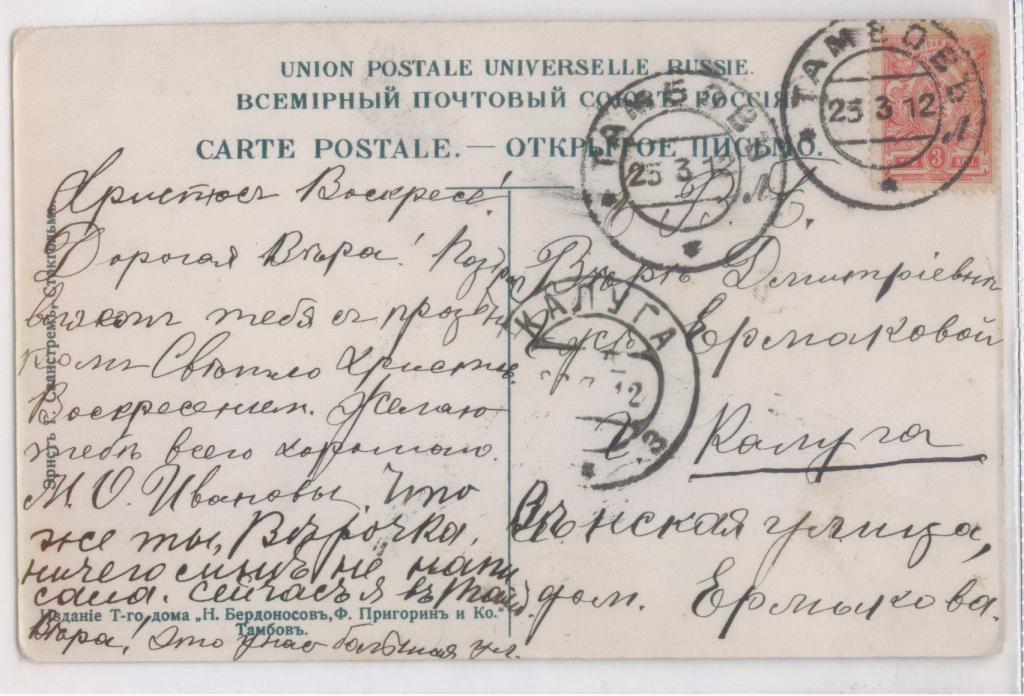 UNION POSTALE UNIVERSELLE. RUSSIE.
ВСЕМІРНЫЙ ПОЧТОВЫЙ СОЮЗЪ. РОССІЯ.
CARTE POSTALE. — ОТКРЫТОЕ ПИСЬМО.
ТАМБОВЪ
25 3 12
Л
3
ТАМБОВЪ
25 3 12
Л
Христосъ Воскресъ!
Дорогая Вѣра! Поздра
вляемъ тебя съ праздни
комъ Свѣтло Христов.
Воскресеніем. Желаю
тебѣ всего хорошаго.
М. О. Ивановы Что
же ты, Вѣрочка,
ничего мнѣ не напи
сала. сейчасъ я въ Тамб.
Вѣра! это у нас большая ул.
Е. В. Б.
Вѣрѣ Дмитріевнѣ
Ермаковой
Калуга
ская улица,
дом. Ермакова.
КАЛУГА
12
3
Эрнстъ Г. Сванстремъ, Стокгольмъ.
Изданіе Т-го дома „Н. Бердоносовъ, Ф. Пригоринъ и Ко."
Тамбовъ.